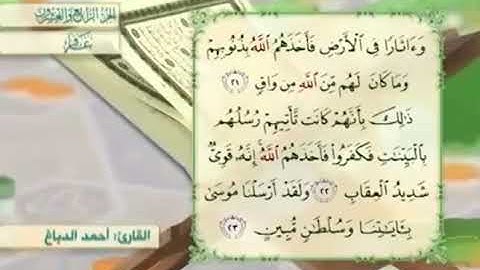 الجزء الرابع والعشرون
غافر
وَءَاثَارًا فِي ٱلْأَرْضِ فَأَخَذَهُمُ ٱللَّهُ بِذُنُوبِهِمْ
وَمَا كَانَ لَهُم مِّنَ ٱللَّهِ مِن وَاقٍ ٢١
ذَٰلِكَ بِأَنَّهُمْ كَانَت تَّأْتِيهِمْ رُسُلُهُم
بِٱلْبَيِّنَٰتِ فَكَفَرُوا۟ فَأَخَذَهُمُ ٱللَّهُ ۚ إِنَّهُۥ قَوِىٌّ
شَدِيدُ ٱلْعِقَابِ ٢٢ وَلَقَدْ أَرْسَلْنَا مُوسَىٰ
بِـَٔايَٰتِنَا وَسُلْطَٰنٍ مُّبِينٍ ٢٣
القارئ: أحمد الدباغ